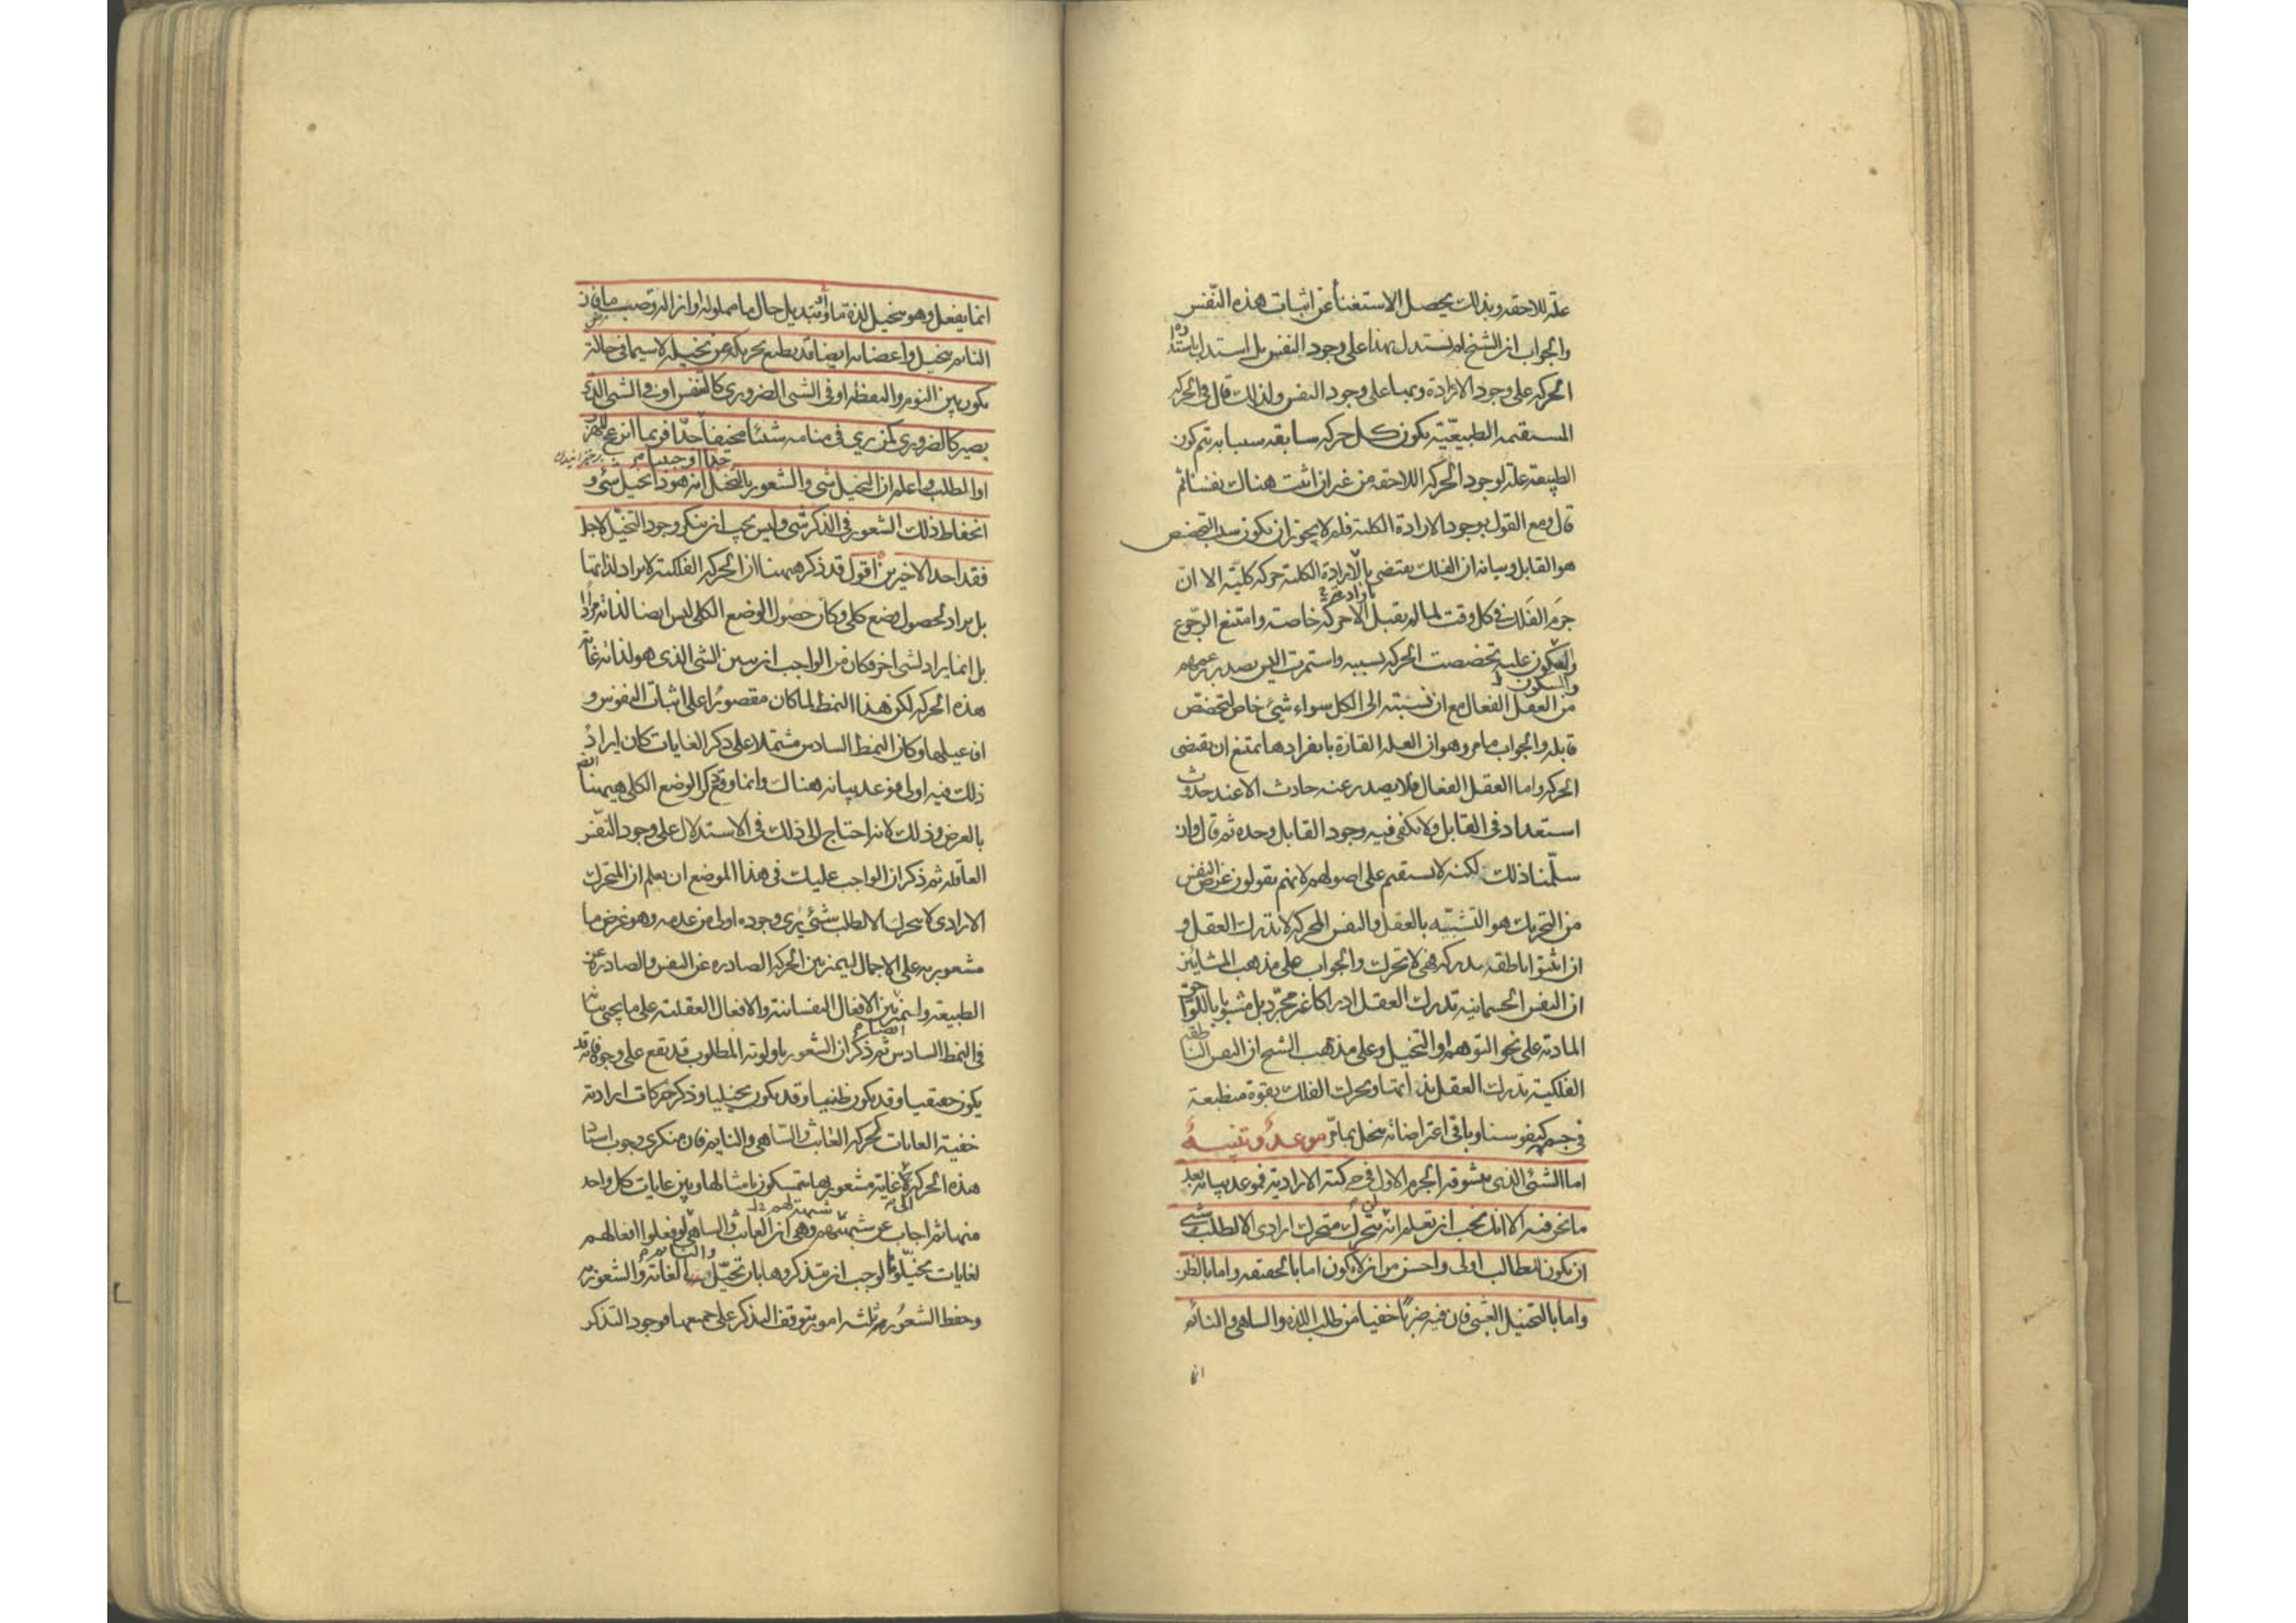 علة للاحقه وبذلك يحصل الاستغناء عن اثبات هذه النفس
والجواب ان الشيخ لم يستدل بهذا على وجود النفس بل استدل
الحركه على وجود الارادة وبها على وجود النفس ولذلك قال في الحركه
المستقيمه الطبيعيّه يكون كل حركه سابقه سببا به تتم كون
الطبيعة علة لوجود الحركه اللاحقه من غير ان اثبت هناك نفسا ثم
قال ومع القول بوجود الارادة الكلية فلم لا يجوز ان يكون سبب التخصص
هو القابل وبيانه ان الفلك يقتضى بالارادة الكلية حركه كليّة الا انّ
جرم الفلك في كل وقت لما لم يقبل الا حركه خاصة وامتنع الرجوع
والسكون عليه تخصصت الحركه بسببه واستمرت اليس يصدر
والسكون
من العقل الفعال مع ان نسبته الى الكل سواء شئ خاص لتخصّص
قابله والجواب ما مر وهو ان العلة القارة بانفرادها يمتنع ان يقتضى
الحركه واما العقل الفعال فلا يصدر عنه حادث الا عند حدوث
استعداد فى القابل ولا يكفى فيه وجود القابل وحده ثم قال وان
سلّمنا ذلك لكنه لا يستقيم على اصولهم لانهم يقولون غرض النفس
من التحريك هو التشبّه بالعقل والنفس المحركه لا تدرك العقل و
ان اثبتوا ناطقه يدركه فهى لا تحرك والجواب على مذهب المشائين
ان النفس الجسمانيه تدرك العقل ادراكا غير مجرّد بل مشوبا باللواحق
الماديه على نحو التوهم او التخيل وعلى مذهب الشيخ ان النفس الناطقه
الفلكية يدرك العقل بذاتها ويحرك الفلك بقوة منطبعة
فى جسمه كنفوسنا وباقى اعتراضاته ينحل بما مرّ موعدٌ وتنبيهٌ
اما الشئ الذى يتشوقه الجرم الاول فى حركته الارادية فموعد بيانه بعد
ما نحن فيه الا انك يجب ان تعلم انه لن يتحرك متحرك ارادى الا لطلب شئ
ان يكون للطالب اولى واحسن من ان لا يكون اما بالحقيقه واما بالظن
واما بالتخيل العبثى فان فيه ضربا خفيا من طلب اللذه والساهى والنائم
انما
انما يفعل وهو يتخيل لذة ما او تبديل حال ما مملوله او ازالة وصب ما فان
النايم يتخيل واعضاءه ايضا قد يطيع تحريكه عن تخيله لا سيما فى حالة
يكون بين النوم واليقظة او فى الشئ الضرورى كالنفس او فى الشئ الذى
يصير كالضرورى كمن يرى فى منامه شيئا مخيفا جدا فربما انزعج للهرب
جدا او حبيبا
او الطلب واعلم ان التخيل شئ والشعور بالتخيل انه هو ذا تخيل شئ و
انحفاظ ذلك الشعور فى الذكر شئ وليس يجب ان ينكر وجود التخيل لاجل
فقد احد الاخيرين اقول قد ذكر هيهنا ان الحركه الفلكية لا يراد لذاتها
بل يراد لحصول وضع كلى وكان حصول الوضع الكلى ليس ايضا لذاته مرادا
بل انما يراد لشئ اخر فكان من الواجب ان يبين الشئ الذى هو لذاته غاية
هذه الحركه لكن هذا النمط لما كان مقصورا على اثبات النفوس و
افاعيلها وكان النمط السادس مشتملا على ذكر الغايات كان ايراد
ذلك فيه اولى فوعد بيانه هناك وانما وقع ذكر الوضع الكلى هيهنا
بالعرض وذلك لانه احتاج الى ذلك فى الاستدلال على وجود النفس
العاقله ثم ذكر ان الواجب عليك فى هذا الموضع ان يعلم ان المتحرك
الارادى لا يتحرك الا لطلب شئ يرى وجوده اولى من عدمه وهو غرض ما
مشعور به على الاجمال ليميز بين الحركه الصادره عن النفس والصادره عن
الطبيعة وليميز بين الافعال النفسانية والافعال العقلية على ما يجئ بيانه
فى النمط السادس ثم ذكر ان الشعور باولوية المطلوب قد يقع على وجوه فانه قد
يكون حقيقيا وقد يكون ظنيا وقد يكون تخيليا وذكر حركات ارادية
خفية الغايات كحركه العابث والساهى والنايم فان منكرى وجوب استناد
هذه الحركه الى غاية مشعور بها يتمسكون بامثالها وبين غايات كل واحد
منها ثم اجاب عن شبهتهم وهى ان العابث والساهى لو فعلوا افعالهم
والنايم
لغايات تخيلوها لوجب ان يتذكروها بان تخيل الغاية والشعور به
وحفظ الشعور به ثلثه امور يتوقف التذكر على جميعها فوجود التذكر